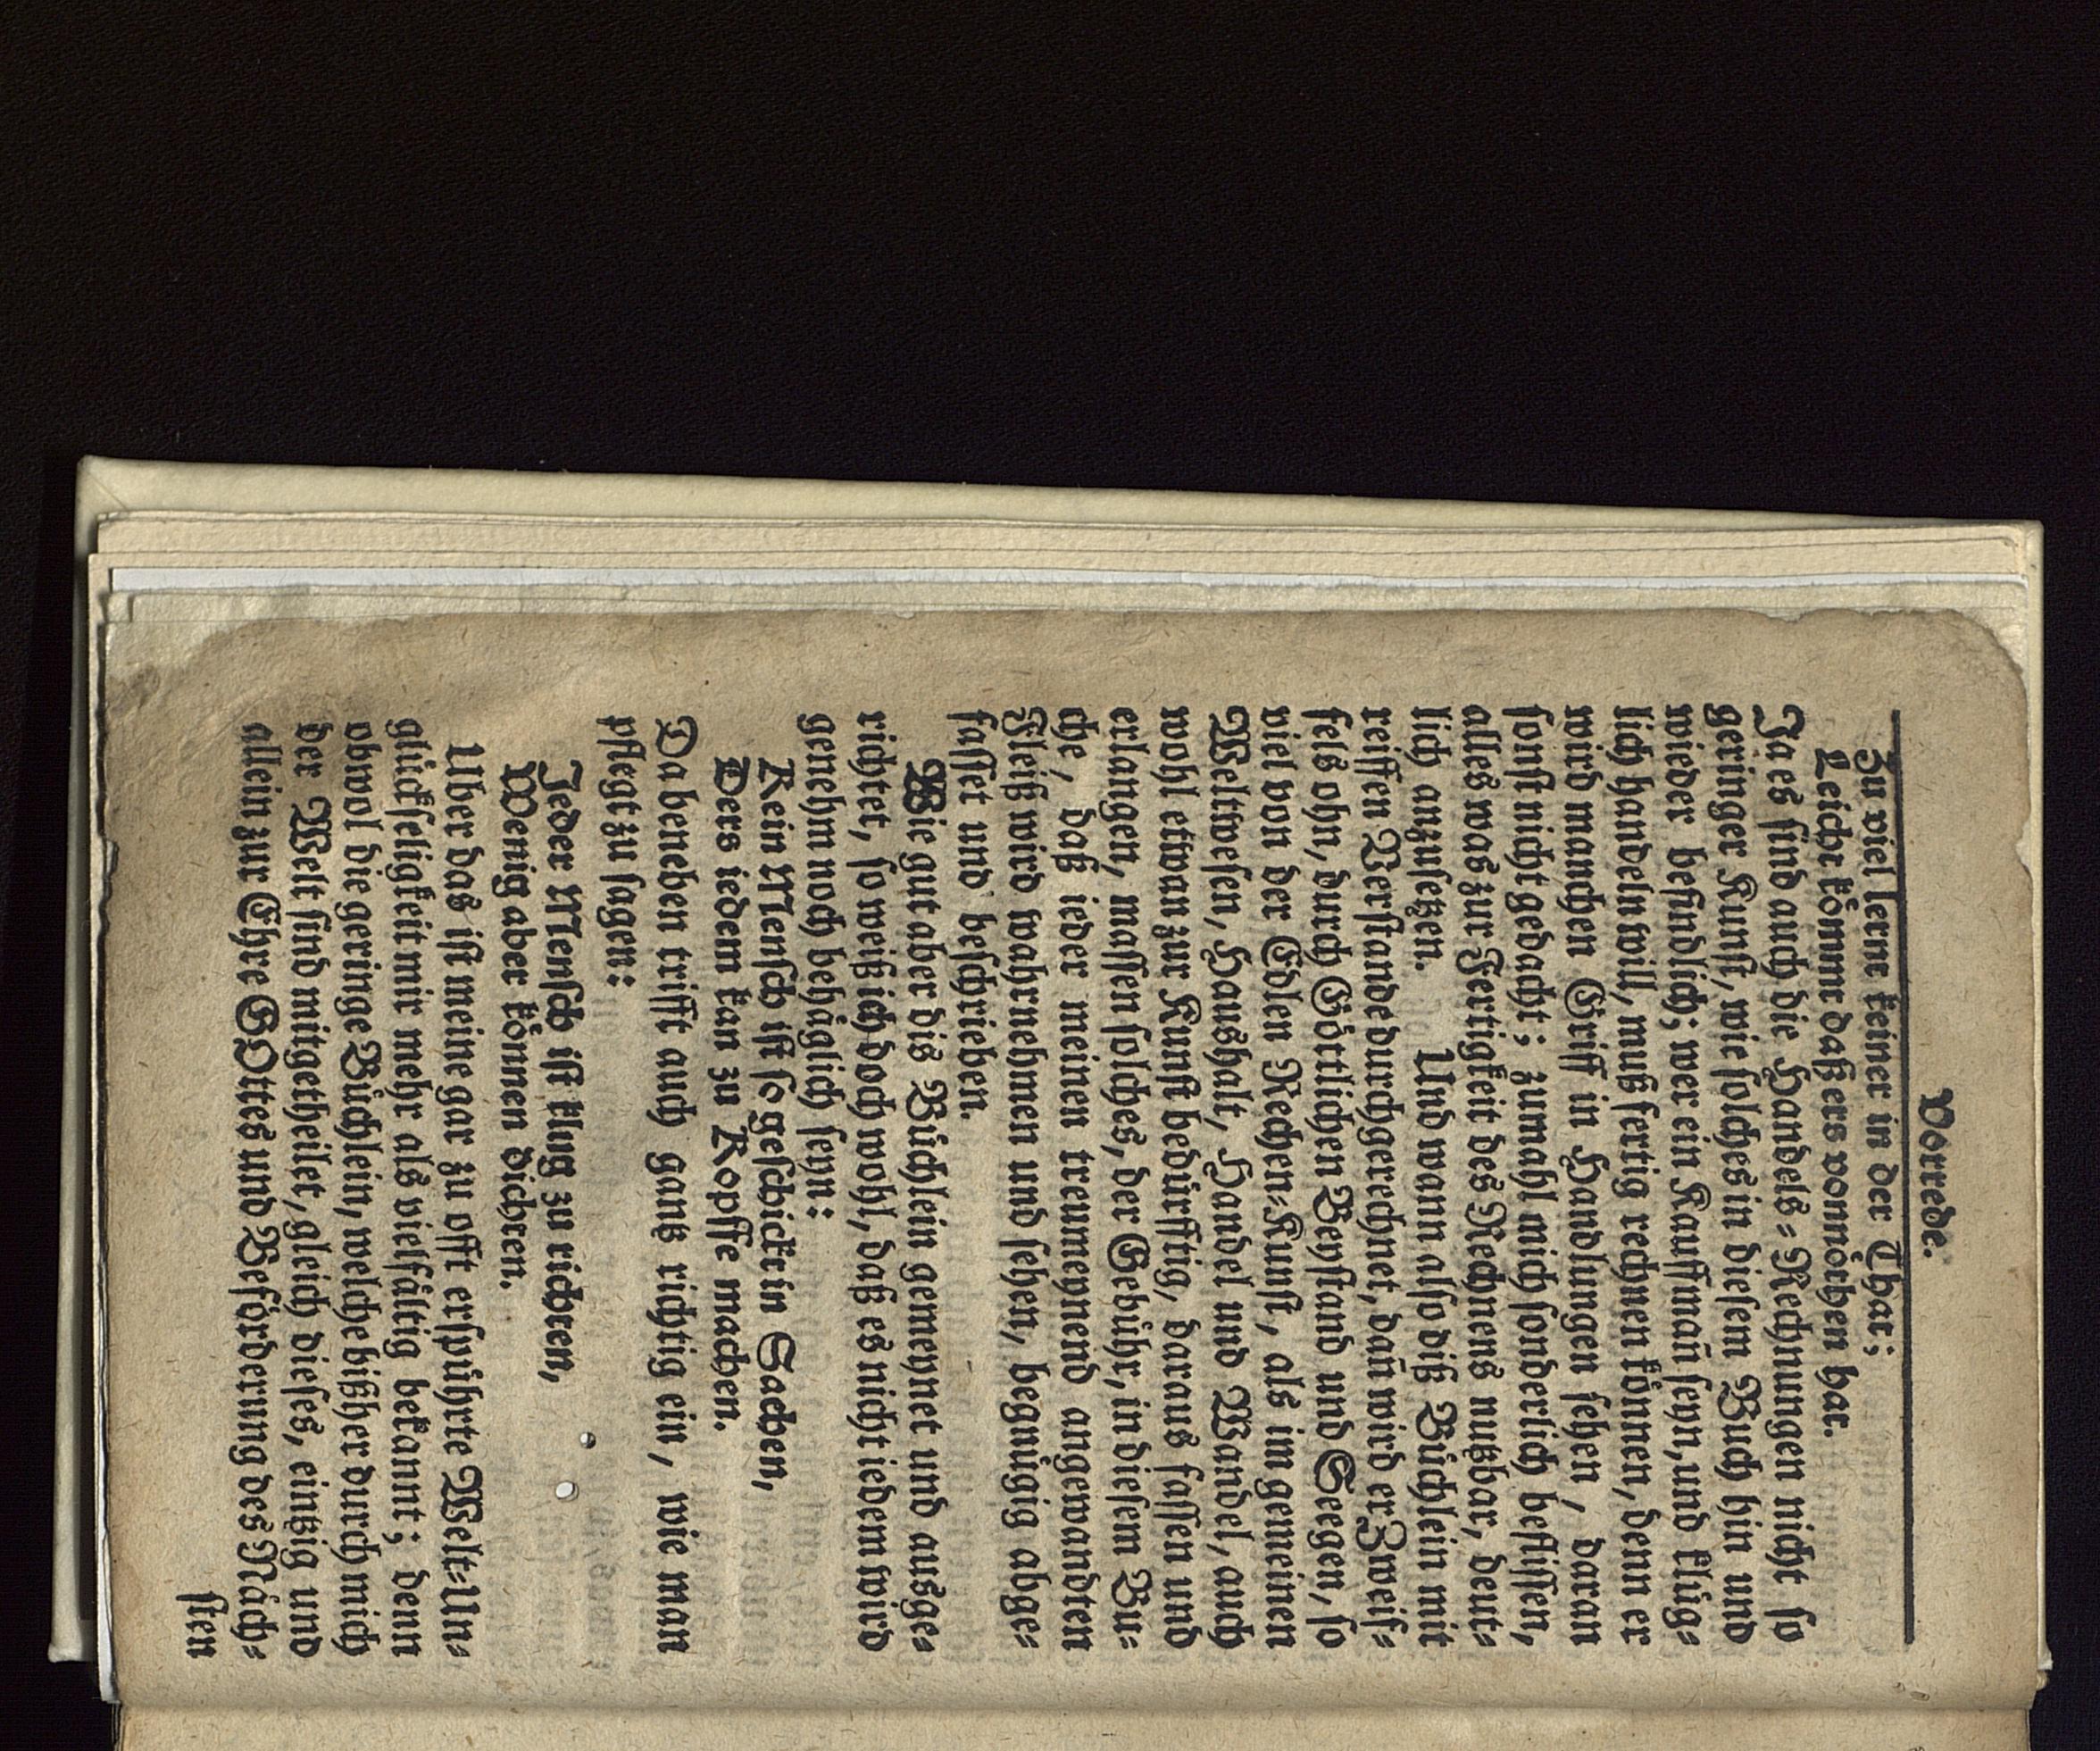 Vorrede.
Zu viel lernt keiner in der That;
Leicht kömmt daß ers vonnöthen hat.
Ja es sind auch die Handels-Rechnungen nicht so
geringer Kunst, wie solches in diesem Buch hin und
wieder befindlich; wer ein Kauffmañ seyn, und klüg-
lich handeln will, muß fertig rechnen können, denn er
wird manchen Griff in Handlungen sehen, daran
sonst nicht gedacht; zumahl mich sonderlich beflissen,
alles was zur Fertigkeit des Rechnens nutzbar, deut-
lich anzusetzen. Und wann also diß Büchlein mit
reiffen Verstande durchgerechnet, dañ wird er Zweif-
fels ohn, durch Göttlichen Beystand und Seegen, so
viel von der Edlen Rechen-Kunst, als im gemeinen
Weltwesen, Haußhalt, Handel und Wandel, auch
wohl etwan zur Kunst bedürfftig, daraus fassen und
erlangen, massen solches, der Gebühr, in diesem Bu-
che, daß ieder meinen treumeynend angewandten
Fleiß wird wahrnehmen und sehen, begnügig abge-
fasset und beschrieben.
Wie gut aber diß Büchlein gemeynet und ausge-
richtet, so weiß ich doch wohl, daß es nicht iedem wird
genehm noch behäglich seyn:
Kein Mensch ist so geschickt in Sachen,
Ders iedem kan zu Kopffe machen.
Da beneben trifft auch gantz richtig ein, wie man
pflegt zu sagen:
Jeder Mensch ist klug zu richten,
Wenig aber können dichten.
Uber das ist meine gar zu offt erspührte Welt-Un-
glückseligkeit mir mehr als vielfältig bekannt; denn
obwol die geringe Büchlein, welche bißher durch mich
der Welt sind mitgetheilet, gleich dieses, eintzig und
allein zur Ehre GOttes und Beförderung des Näch-
sten